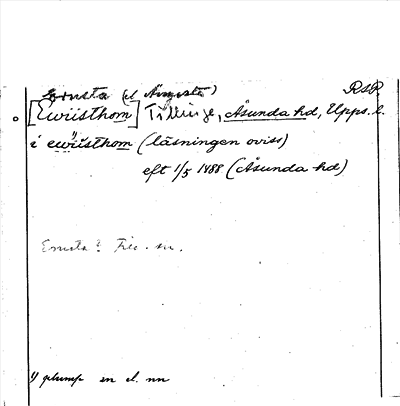 Ernsta (el Årnesta) RSR
[Ewiisthom] Tillinge, Åsunda hd, Upps. l.
i ewiisthom (läsningen oviss)
eft 1/5 1488 (Åsunda hd)
Ernsta?
1) plump en el. nn